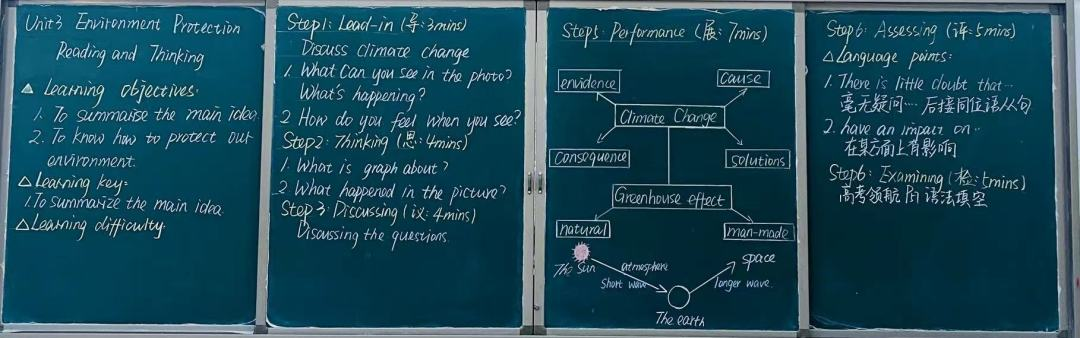 Unit3 Environment Protection
Reading and Thinking
△ Learning objectives:
1. To summarise the main idea.
2. To know how to protect our
environment.
△ Learning key:
1. To summarize the main idea
△ Learning difficulty
Step1: Lead-in (导: 3mins)
Discuss climate change
1. What can you see in the photo?
What's happening?
2 How do you feel when you see?
Step2: Thinking (思: 4mins)
1. What is graph about?
2. What happened in the picture?
Step 3: Discussing (议: 4mins)
Discussing the questions.
Step5: Performance (展: 7mins)
envidence
cause
Climate Change
consequence
solutions
Greenhouse effect
natural
man-made
The Sun
atmosphere
short wave
space
longer wave.
The earth
Step6: Assessing (评: 5mins)
△ Language points:
1. There is little doubt that...
毫无疑问... 后接同位语从句
2. have an impact on...
在某方面上有影响
Step6: Examining (检: 5mins)
高考领航 语法填空